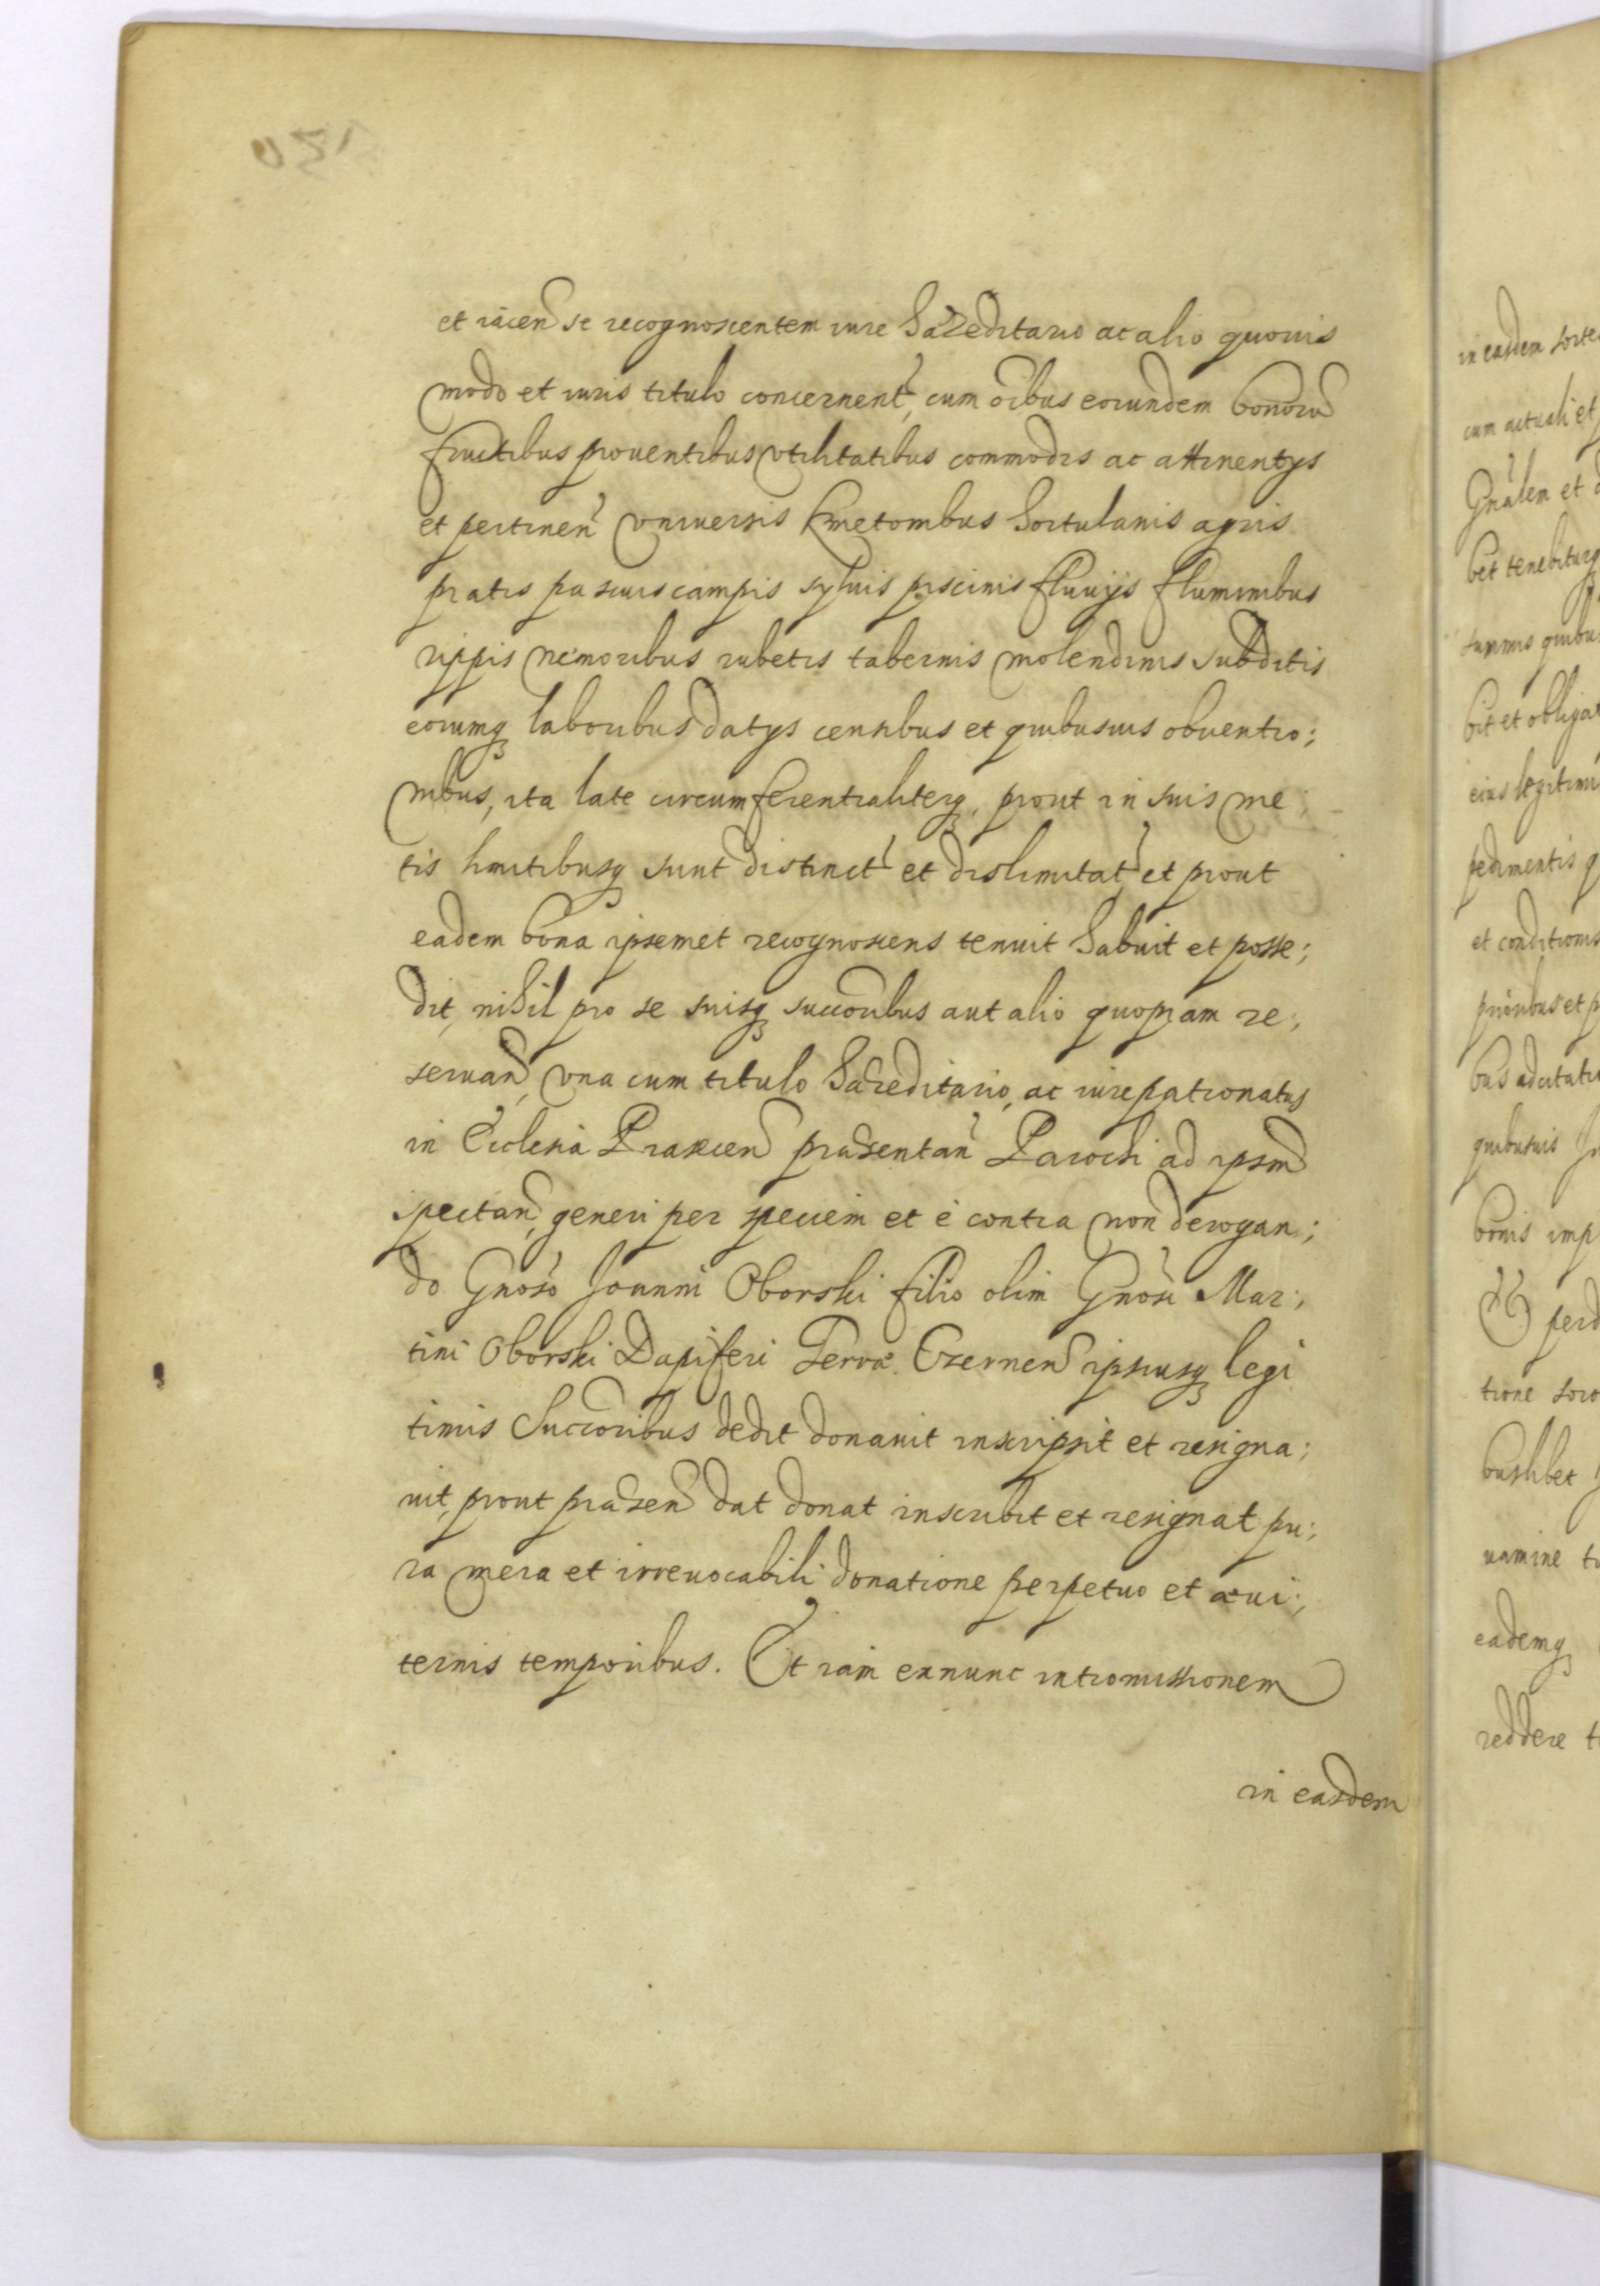 et iacen se recognoscentem iure haereditario ac alio quovis
modo et iuris titulo concernent, cum oibus eorundem bonoru
fructibus proventibus utilitatibus commodis ac attinentys
et pertinen universis kmetombus hortulanis agris
pratis pascuis campis sylvis piscinis fluuys fluminibus
rippis nemoribus rubetis tabernis molendinis subditis
eorumq laboribus datys censibus et quibusvis obventio;
nibus, ita late circumferentialiterq, prout in suis me;
tis limitibusq sunt distinct et dislimitat et prout
eadem bona ipsemet recognoscens tenuit habuit et posse;
dit, nihil pro se suisq succoribus aut alio quopiam re;
servan, una cum titulo haereditario, ac iure patronatus
in Ecclesia praesentan Parochi ad ipsm
spectan, generi per speciem et è contra non derogan;
do Gnoso Joanni Oborski filio olim Gnosi Mar;
tini Oborski Dapiferi Terrae Czernen ipsiusq legi
timis Succoribus dedit donavit inscripsit et resigna;
vit, prout praesen dat donat inscribit et resignat pu;
ra mera et irrevocabili donatione perpetuo et aevi;
ternis temporibus. Et iam exnunc intromissionem
in easdem
in easdem sorte
cum actuali et
Gnalem et
bet tenebiturq
summis quibu
bit et obligat
eius legitimi
pedimentis q
et conditionis
prioribus et p
bus adcitatio
quibusvis
bonis imp
tione
buslibet
vamine
eademq
reddere t